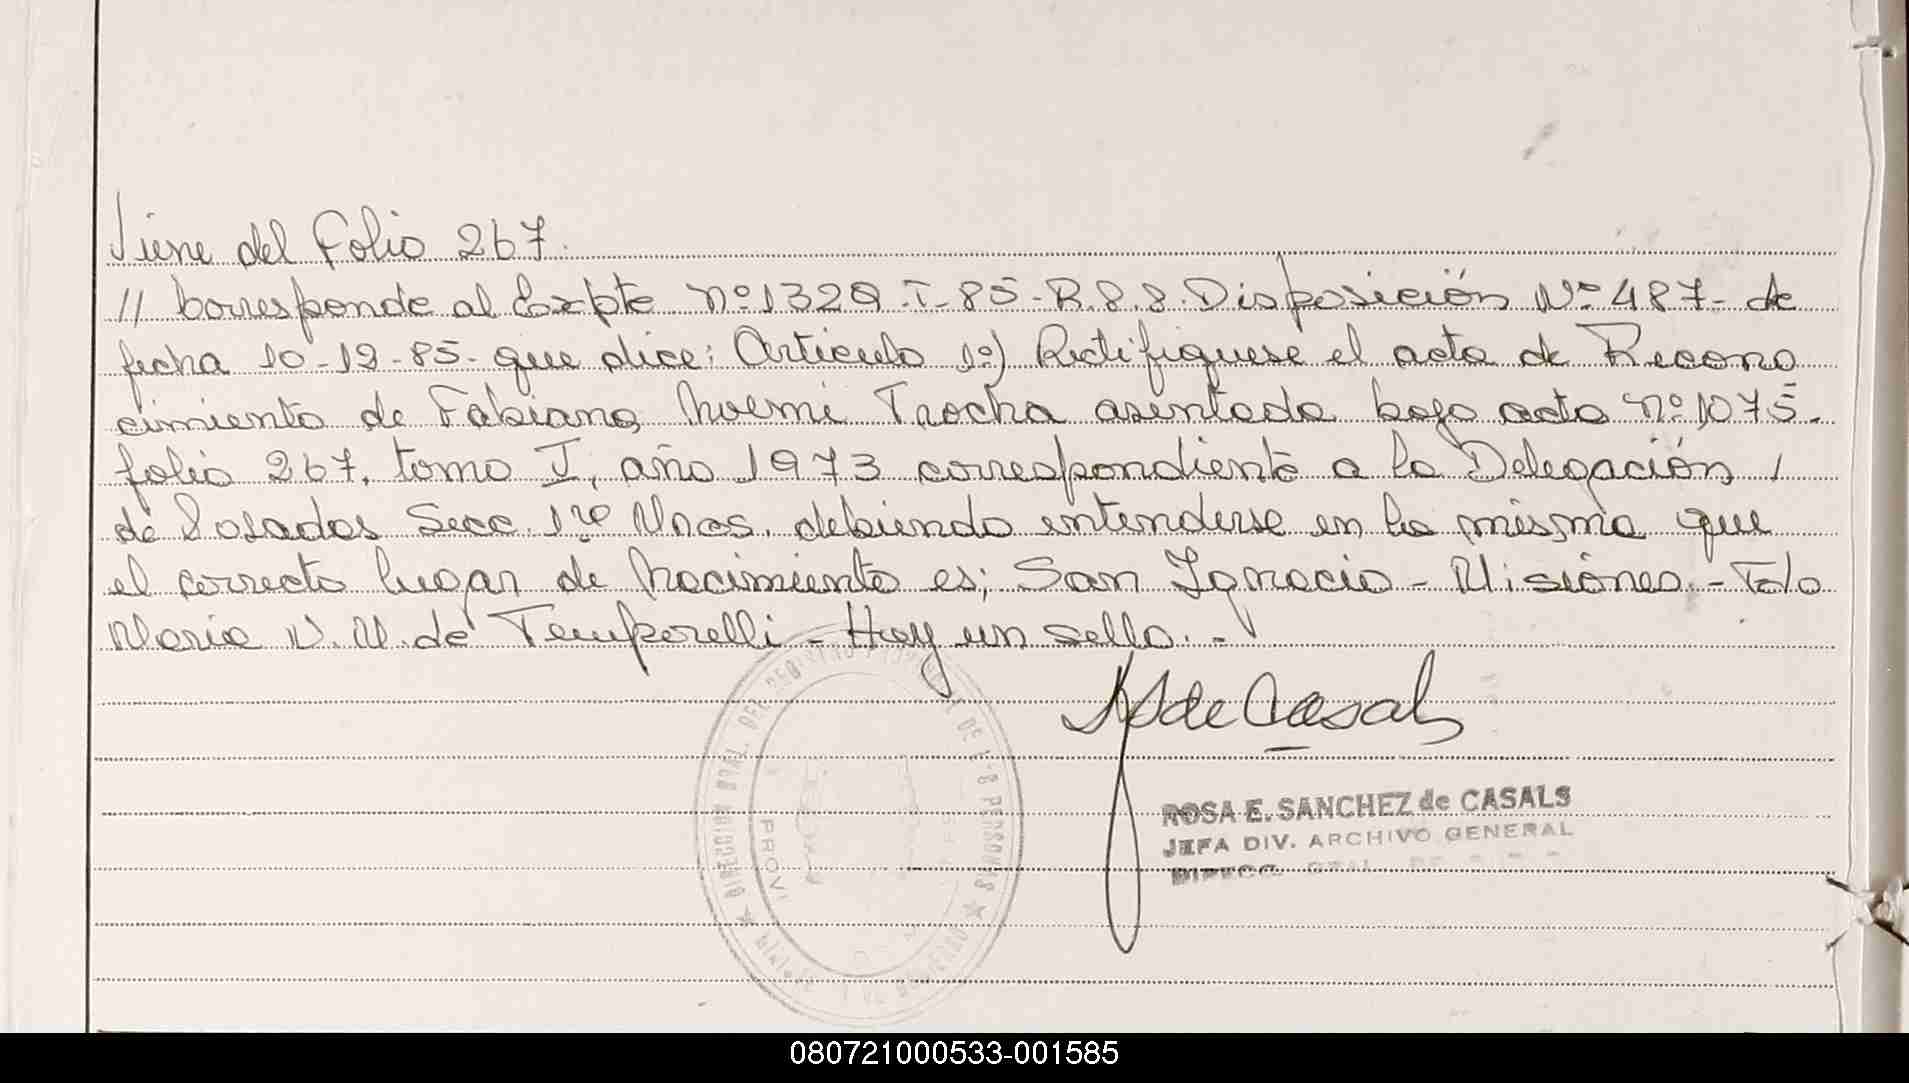 Viene del Folio 267.
// Corresponde al Expte Nº 1329-I-85-R.P.P. Disposición Nº 487- de
fecha 10-12-85- que dice: Articulo 1º) Rectifiquese el acta de Recono
cimiento de Fabiana Noemi Trocha asentada bajo acta Nº 1075-
folio 267, tomo I, año 1973 correspondiente a la Delegación /
de Posadas Secc. 1ra Mnes. debiendo entenderse en la misma que
el correcto lugar de Nacimiento es; San Ignacio - Misiones.- Fdo
Maria V. M. de Temporelli - Hay un sello.-
de Casals
ROSA E. SANCHEZ de CASALS
JEFA DIV. ARCHIVO GENERAL
DIRECC. GRAL.
DIRECCION GRAL. DEL REGISTRO PROVINCIAL DE LAS PERSONAS
PROVI